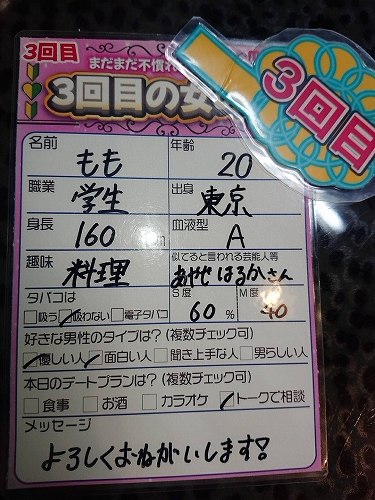 3回目
まだまだ不慣れ
3回目の女
3回目
名前 もも 年齢 20
職業 学生 出身 東京
身長 160 cm 血液型 A
趣味 料理 似てると言われる芸能人等 あやせはるかさん
タバコは S度 M度
□吸う □吸わない □電子タバコ 60% 40
好きな男性のタイプは?(複数チェック可)
□優しい人 □面白い人 □聞き上手な人 □男らしい人
本日のデートプランは?(複数チェック可)
□食事 □お酒 □カラオケ □トークで相談
メッセージ
よろしくおねがいします!